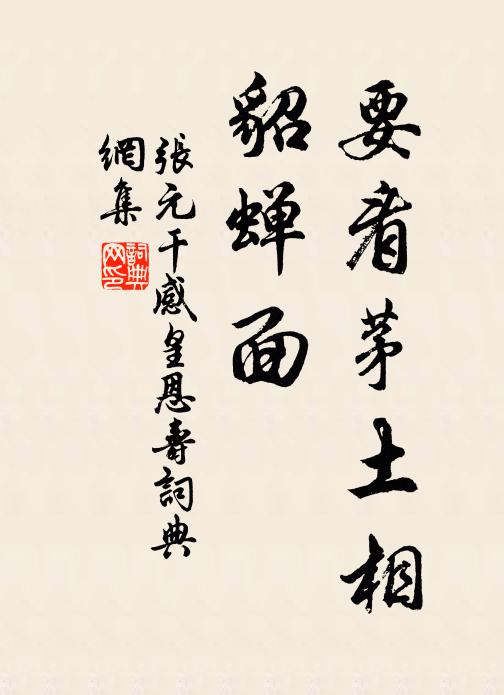 要看茅土相
貂蝉面
張元干感皇恩壽詞典
網集
詞典网印